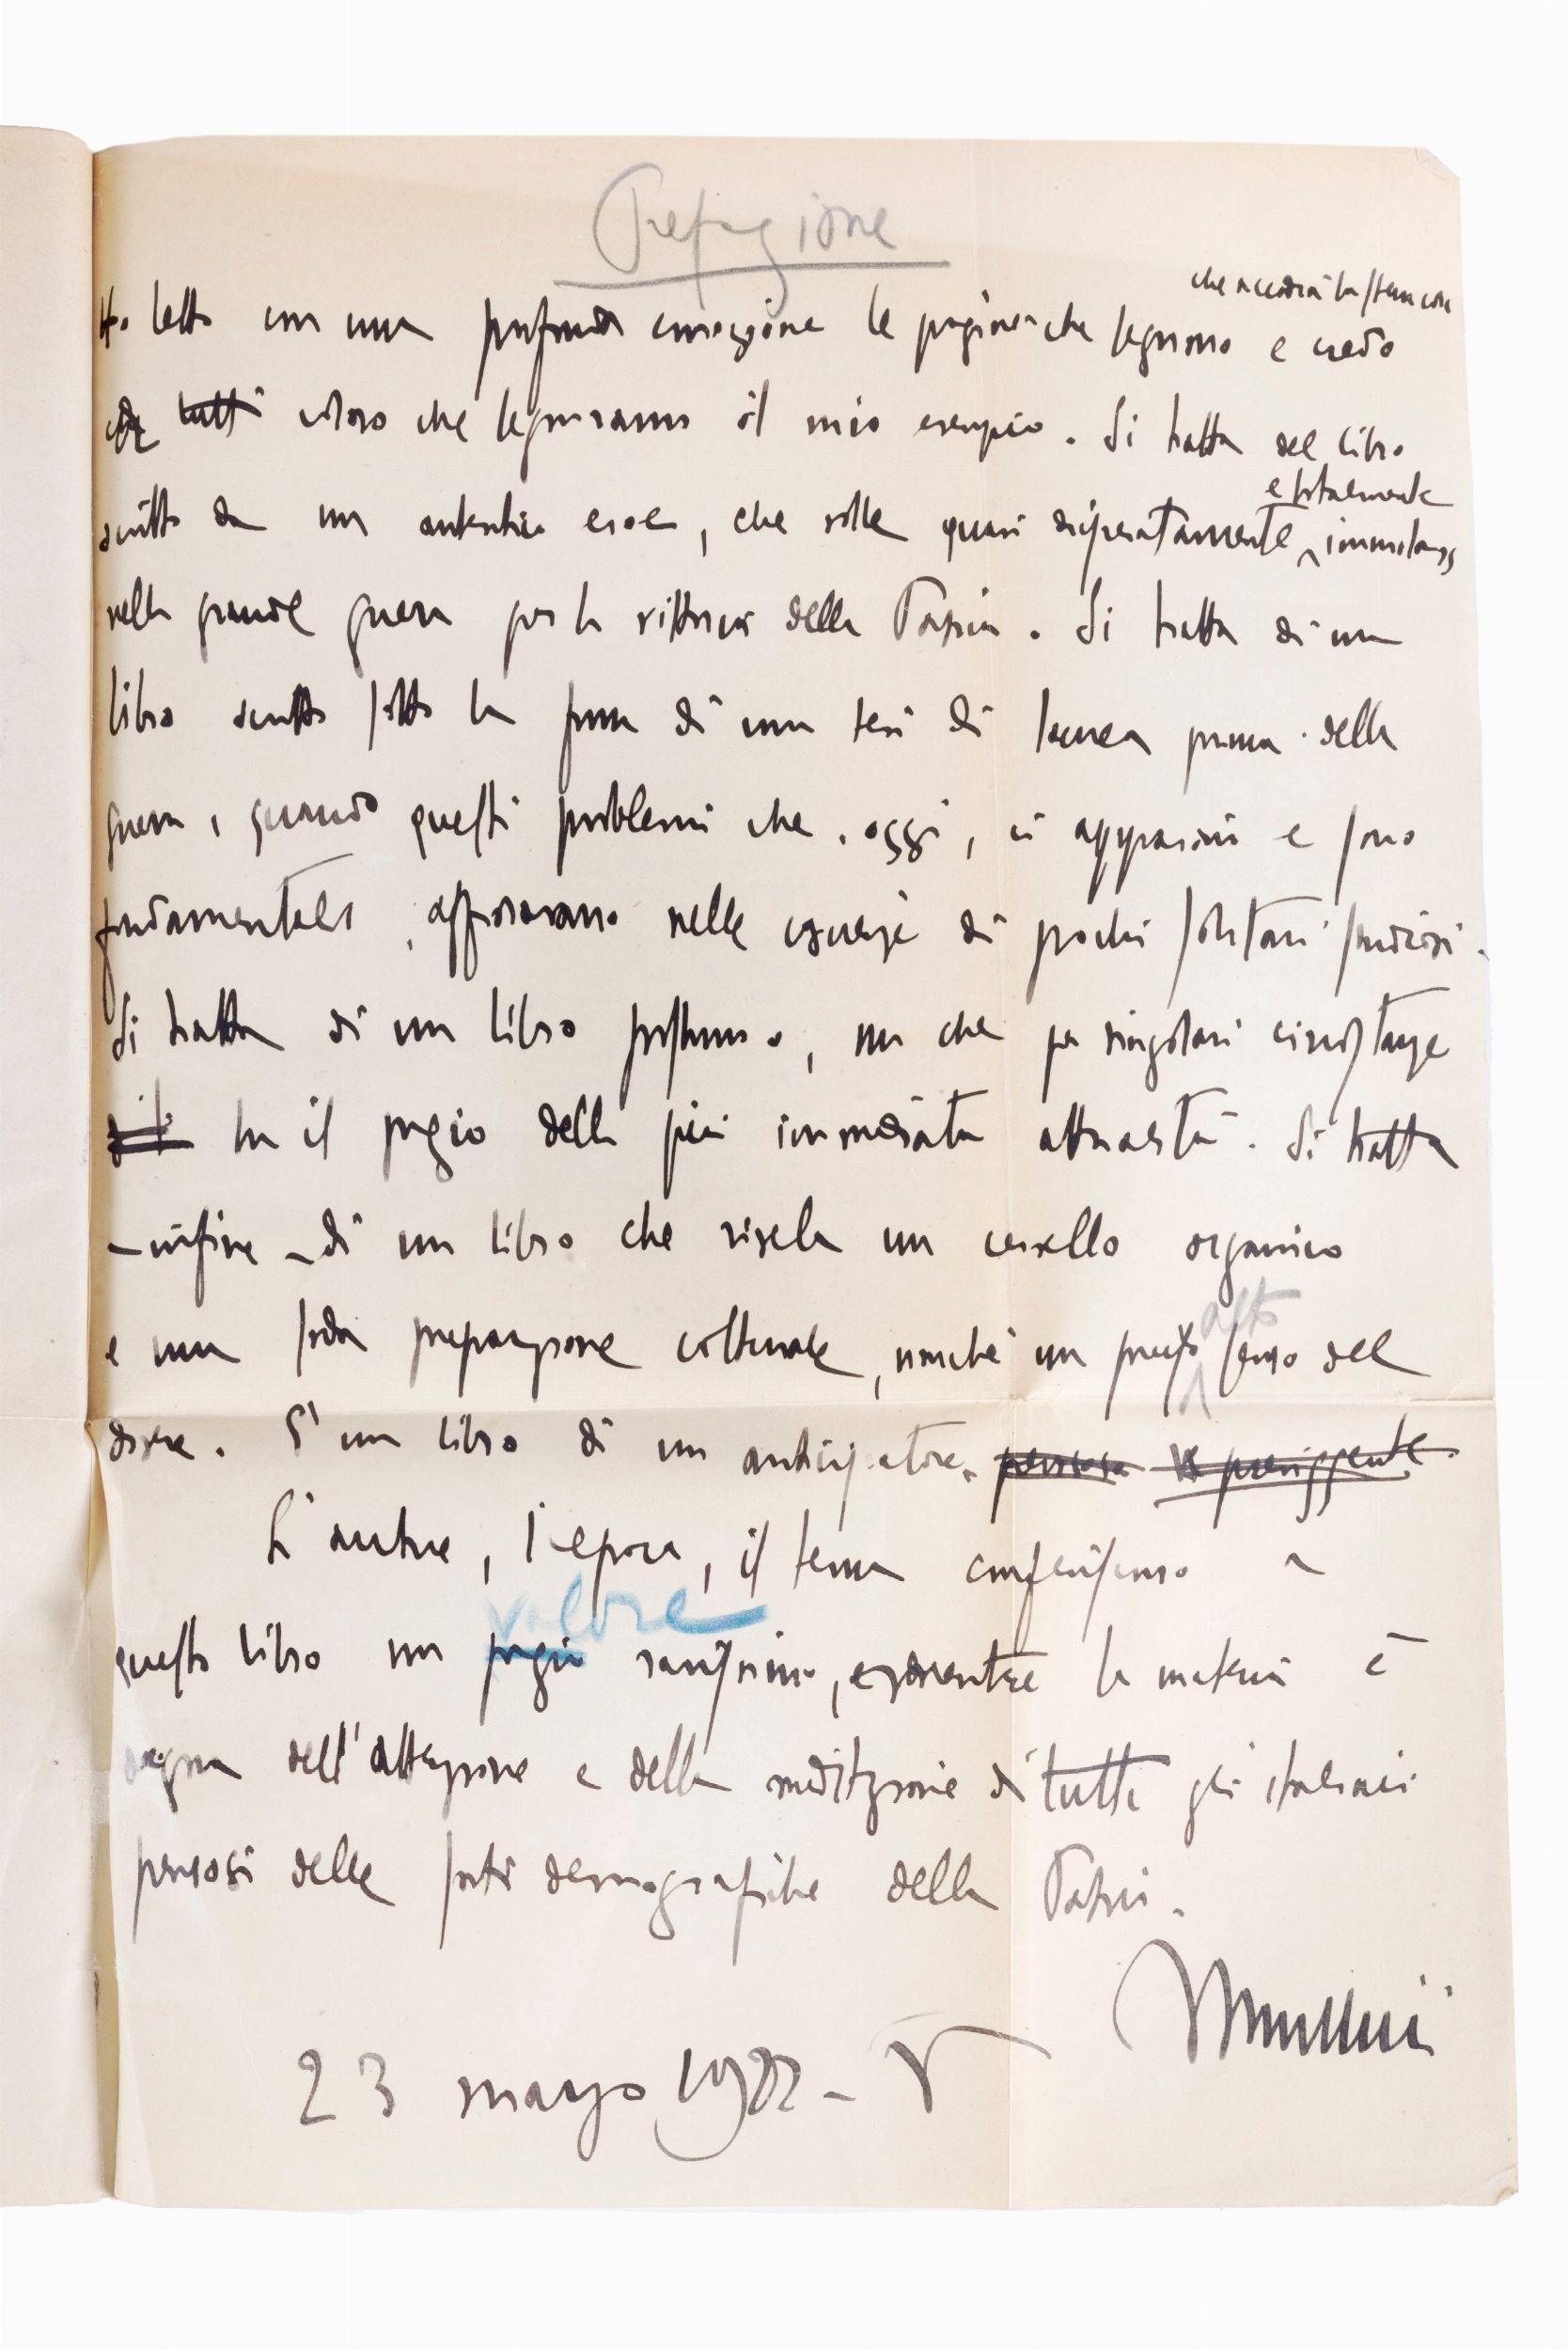 Prefazione
che accadrà la stessa cosa
Ho letto con una profonda emozione le pagine che seguono e credo
che tutti coloro che seguiranno il mio esempio. Si tratta del libro
e totalmente
scritto da un autentico eroe, che volle quasi disperatamente immolarsi
nella grande guerra per la vittoria della Patria. Si tratta di un
libro scritto sotto la forma di una tesi di laurea prima della
guerra, quando questi problemi che, oggi, ci appaiono e sono
fondamentali, affioravano nelle coscienze di pochi solitari studiosi.
Si tratta di un libro postumo, ma che per singolari circostanze
ha il pregio della più immediata attualità. Si tratta
- infine - di un libro che rivela un cervello organico
alto
e una soda preparazione culturale, nonché un senso del
dovere. E' un libro di un anticipatore. pensoso e preveggente.
L'autore, l'epoca, il tema conferiscono a
valore
questo libro un pregio rarissimo, mentre la materia è
degna dell'attenzione e della meditazione di tutti gli italiani
pensosi delle sorti demografiche della Patria.
Mussolini
23 marzo 192 - V